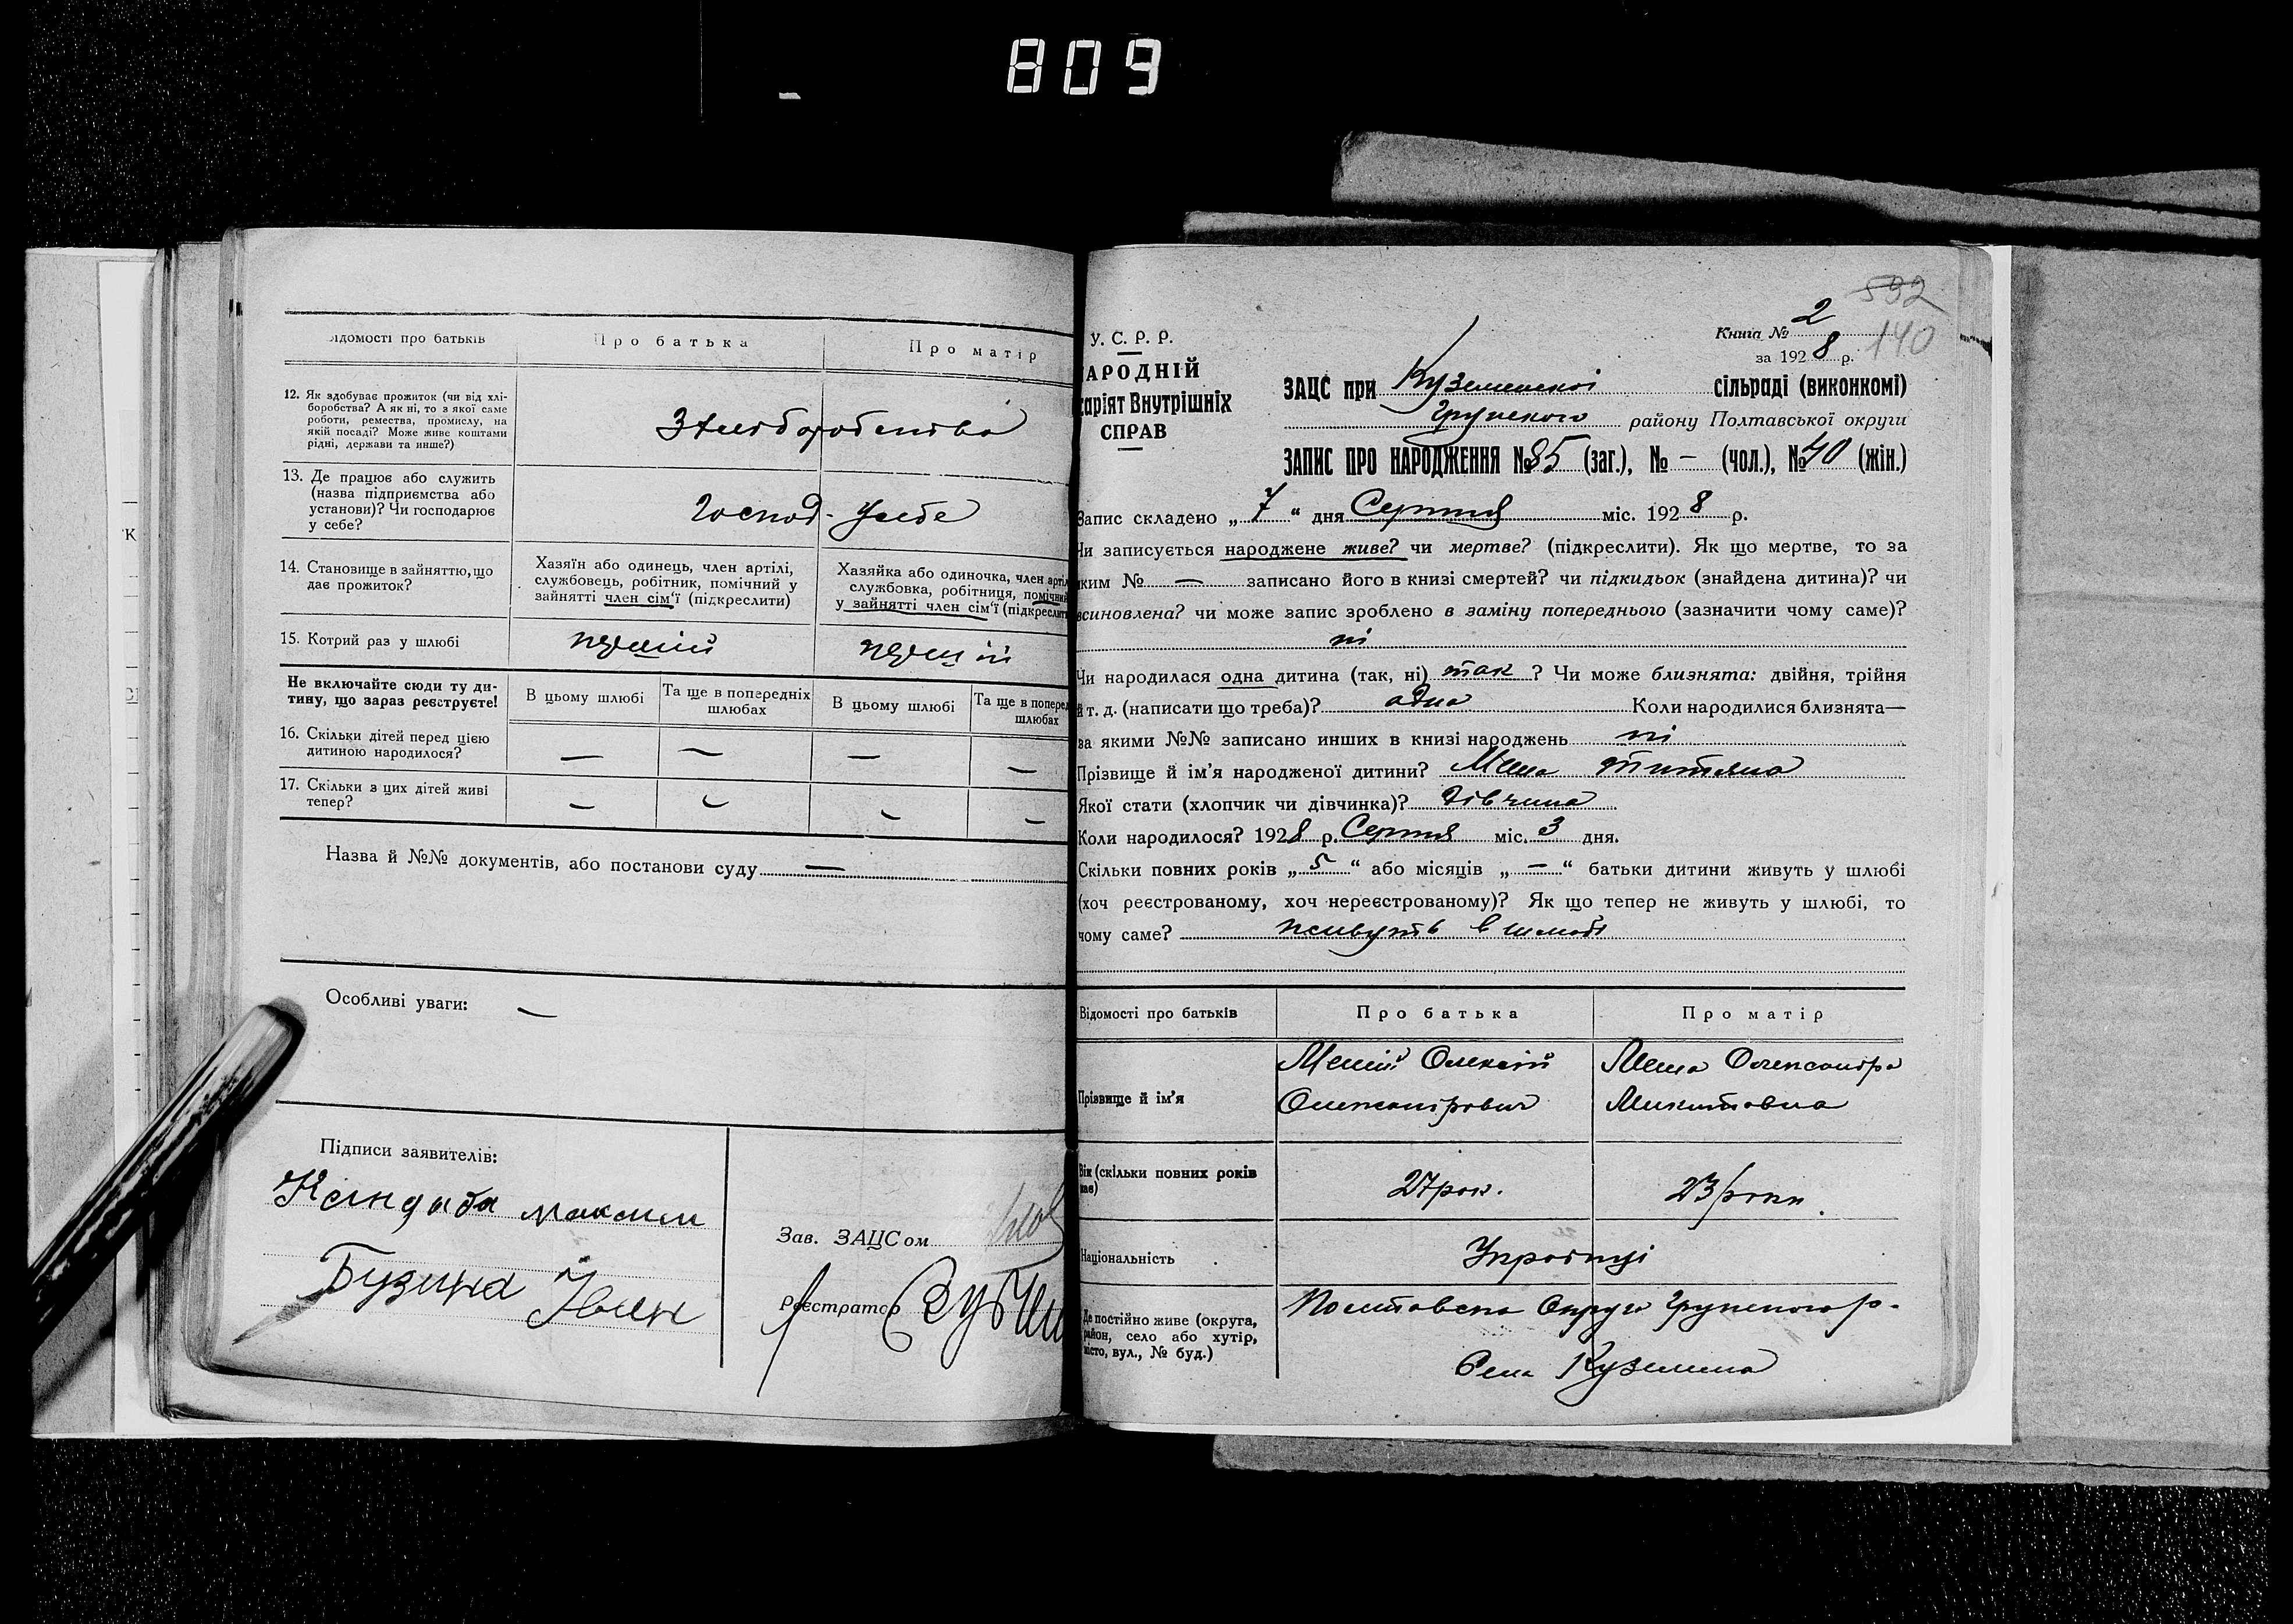 809
Відомості про батьків
Про батька
Про матір
12. Як здобуває прожиток (чи від хлі-
боробства? А як ні, то з якої саме
роботи, ремества, промислу, на
якій посаді? Може живе коштами
рідні, держави та инше?)
З хліборобства
13. Де працює або служить
(назва підприємства або
установи)? Чи господарює
у себе?
Господ. у себе
14. Становище в зайняттю, що
дає прожиток?
Хазяїн або одинець, член артілі,
службовець, робітник, помічний у
зайнятті член сім'ї (підкреслити)
Хазяйка або одиночка, член артіл
службовка, робітниця, помічний
у зайнятті член сім'ї (підкреслит
15. Котрий раз у шлюбі
перший
перший
Не включайте сюди ту ди-
тину, що зараз реєструєте!
В цьому шлюбі
Та ще в попередніх
шлюбах
В цьому шлюбі
Та ще в поперед
шлюбах
16. Скільки дітей перед цією
дитиною народилося?
— — — —
17. Скільки з цих дітей живі
тепер?
— — — —
Назва й №№ документів, або постанови суду —
Особливі уваги: —
Підписи заявителів:
Максим
Бузина Іван
Зав. ЗАЦСом
Реєстратор
592
140
Книга № 2
за 1928 р.
У. С. Р. Р.
АРОДНІЙ
аріят Внутрішніх
СПРАВ
ЗАЦС при Куземенській сільраді (виконкомі)
Грунського району Полтавської округи
ЗАПИС ПРО НАРОДЖЕННЯ № 85 (заг.), № – (чол.), № 40 (жін.)
Запис складено „ 7 “ дня Серпня міс. 1928 р.
Чи записується народжене живе? чи мертве? (підкреслити). Як що мертве, то за
яким № — записано його в книзі смертей? чи підкидьок (знайдена дитина)? чи
всиновлена? чи може запис зроблено в заміну попереднього (зазначити чому саме)?
ні
Чи народилася одна дитина (так, ні) так ? Чи може близнята: двійня, трійня
й т. д. (написати що треба)? одна Коли народилися близнята—
за якими №№ записано инших в книзі народжень ні
Прізвище й ім'я народженої дитини? Титяна
Якої стати (хлопчик чи дівчинка)? дівчина
Коли народилося? 1928 р. Серпня міс. 3 дня.
Скільки повних років „ 5 “ або місяців „ — “ батьки дитини живуть у шлюбі
(хоч реєстрованому, хоч нереєстрованому)? Як що тепер не живуть у шлюбі, то
чому саме? живуть в шлюбі
Відомості про батьків
Про батька
Про матір
Прізвище й ім'я
Олексій
Олександрович
Олександра
Микитовна
Вік (скільки повних років
має)
27 рок.
23 роки
Національність
Українці
Де постійно живе (округа,
район, село або хутір,
місто, вул., № буд.)
Полтавська Округа Грунського р-
Село Куземина